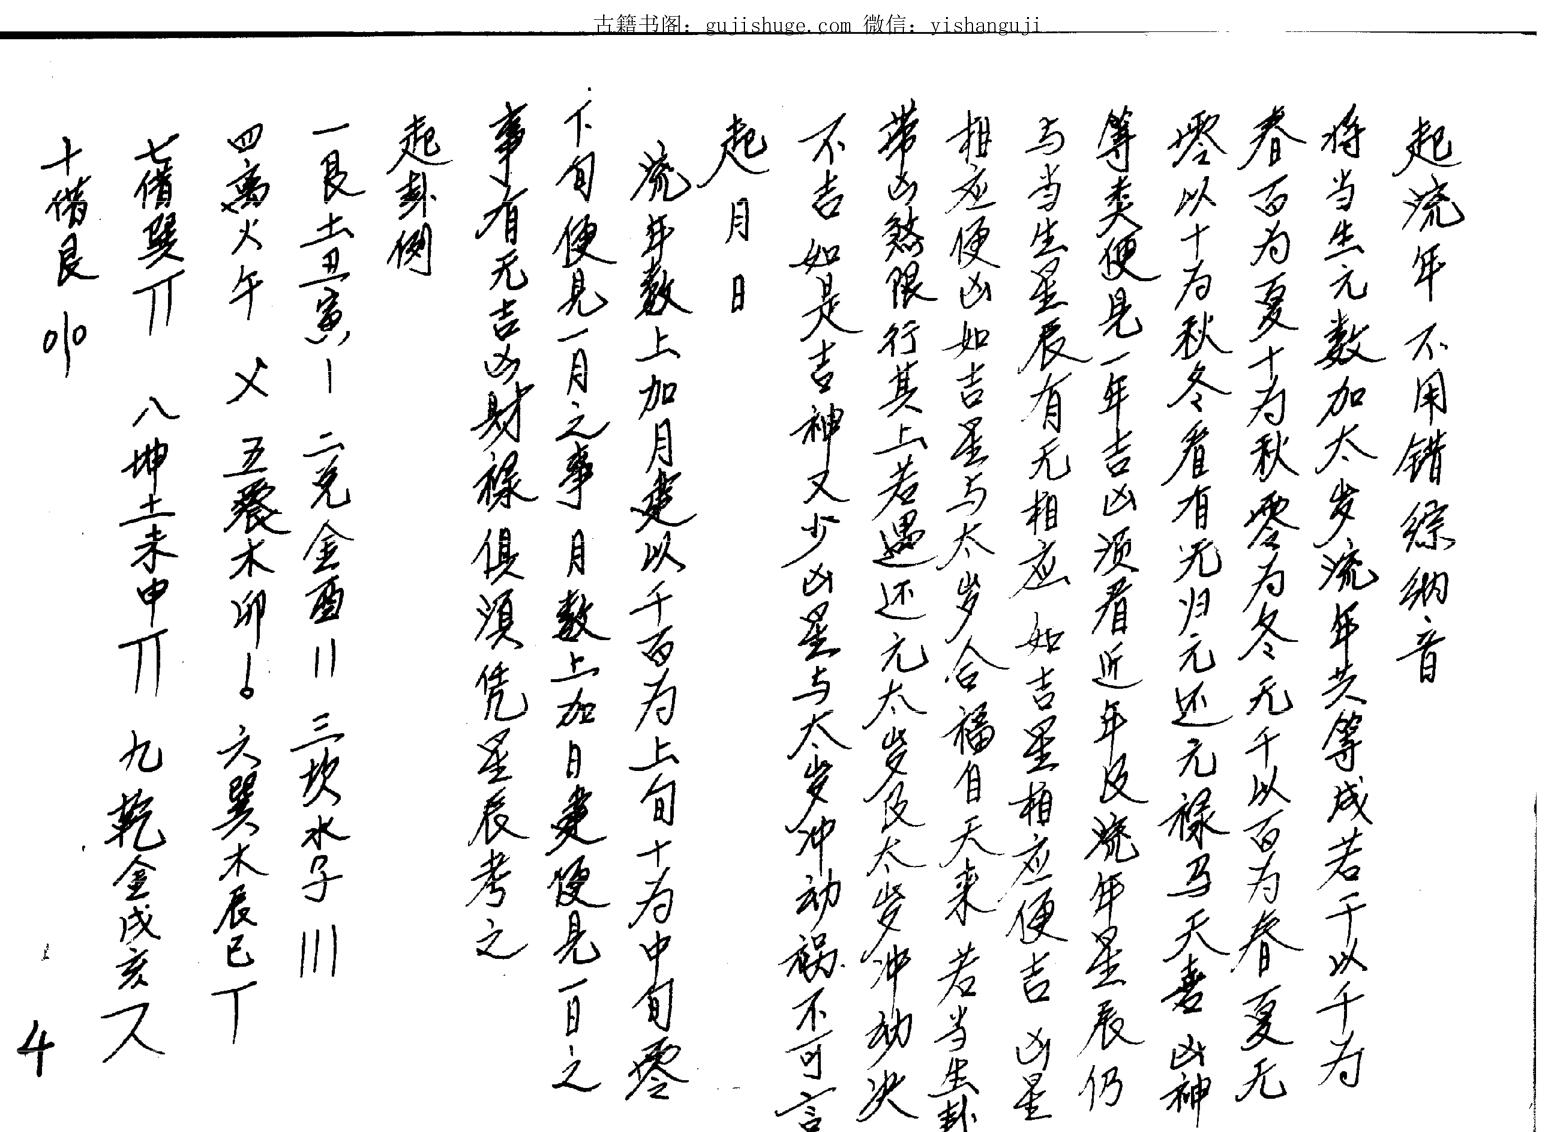 古籍书阁：gujishuge.com 微信：yishanguji
起流年 不用错综纳音
将当生元数加太岁流年共等成若干以千为
春百为夏十为秋零为冬无千以百为春夏无
零以十为秋冬看有无归元还元禄马天喜凶神
等类便见一年吉凶须看近年及流年星辰仍
与当生星辰有无相应 如吉星相应便吉 凶星
相应便凶如吉星与太岁合福自天来 若当生卦
带凶煞限行其上若遇还元太岁及太岁冲动决
不吉 如是吉神又少凶星与太岁冲动祸不可言
起月日
流年数上加月建以千百为上旬十为中旬零
下旬便见一月之事 月数上加日建便见一日之
事有无吉凶财禄俱须凭星辰考之
起卦例
一艮土丑寅〡 二兑金酉〢 三坎水子〣
四离火午 〤 五震木卯 六巽木辰巳〦
七借巽〧 八坤土未申〧 九乾金戌亥〩
十借艮
4